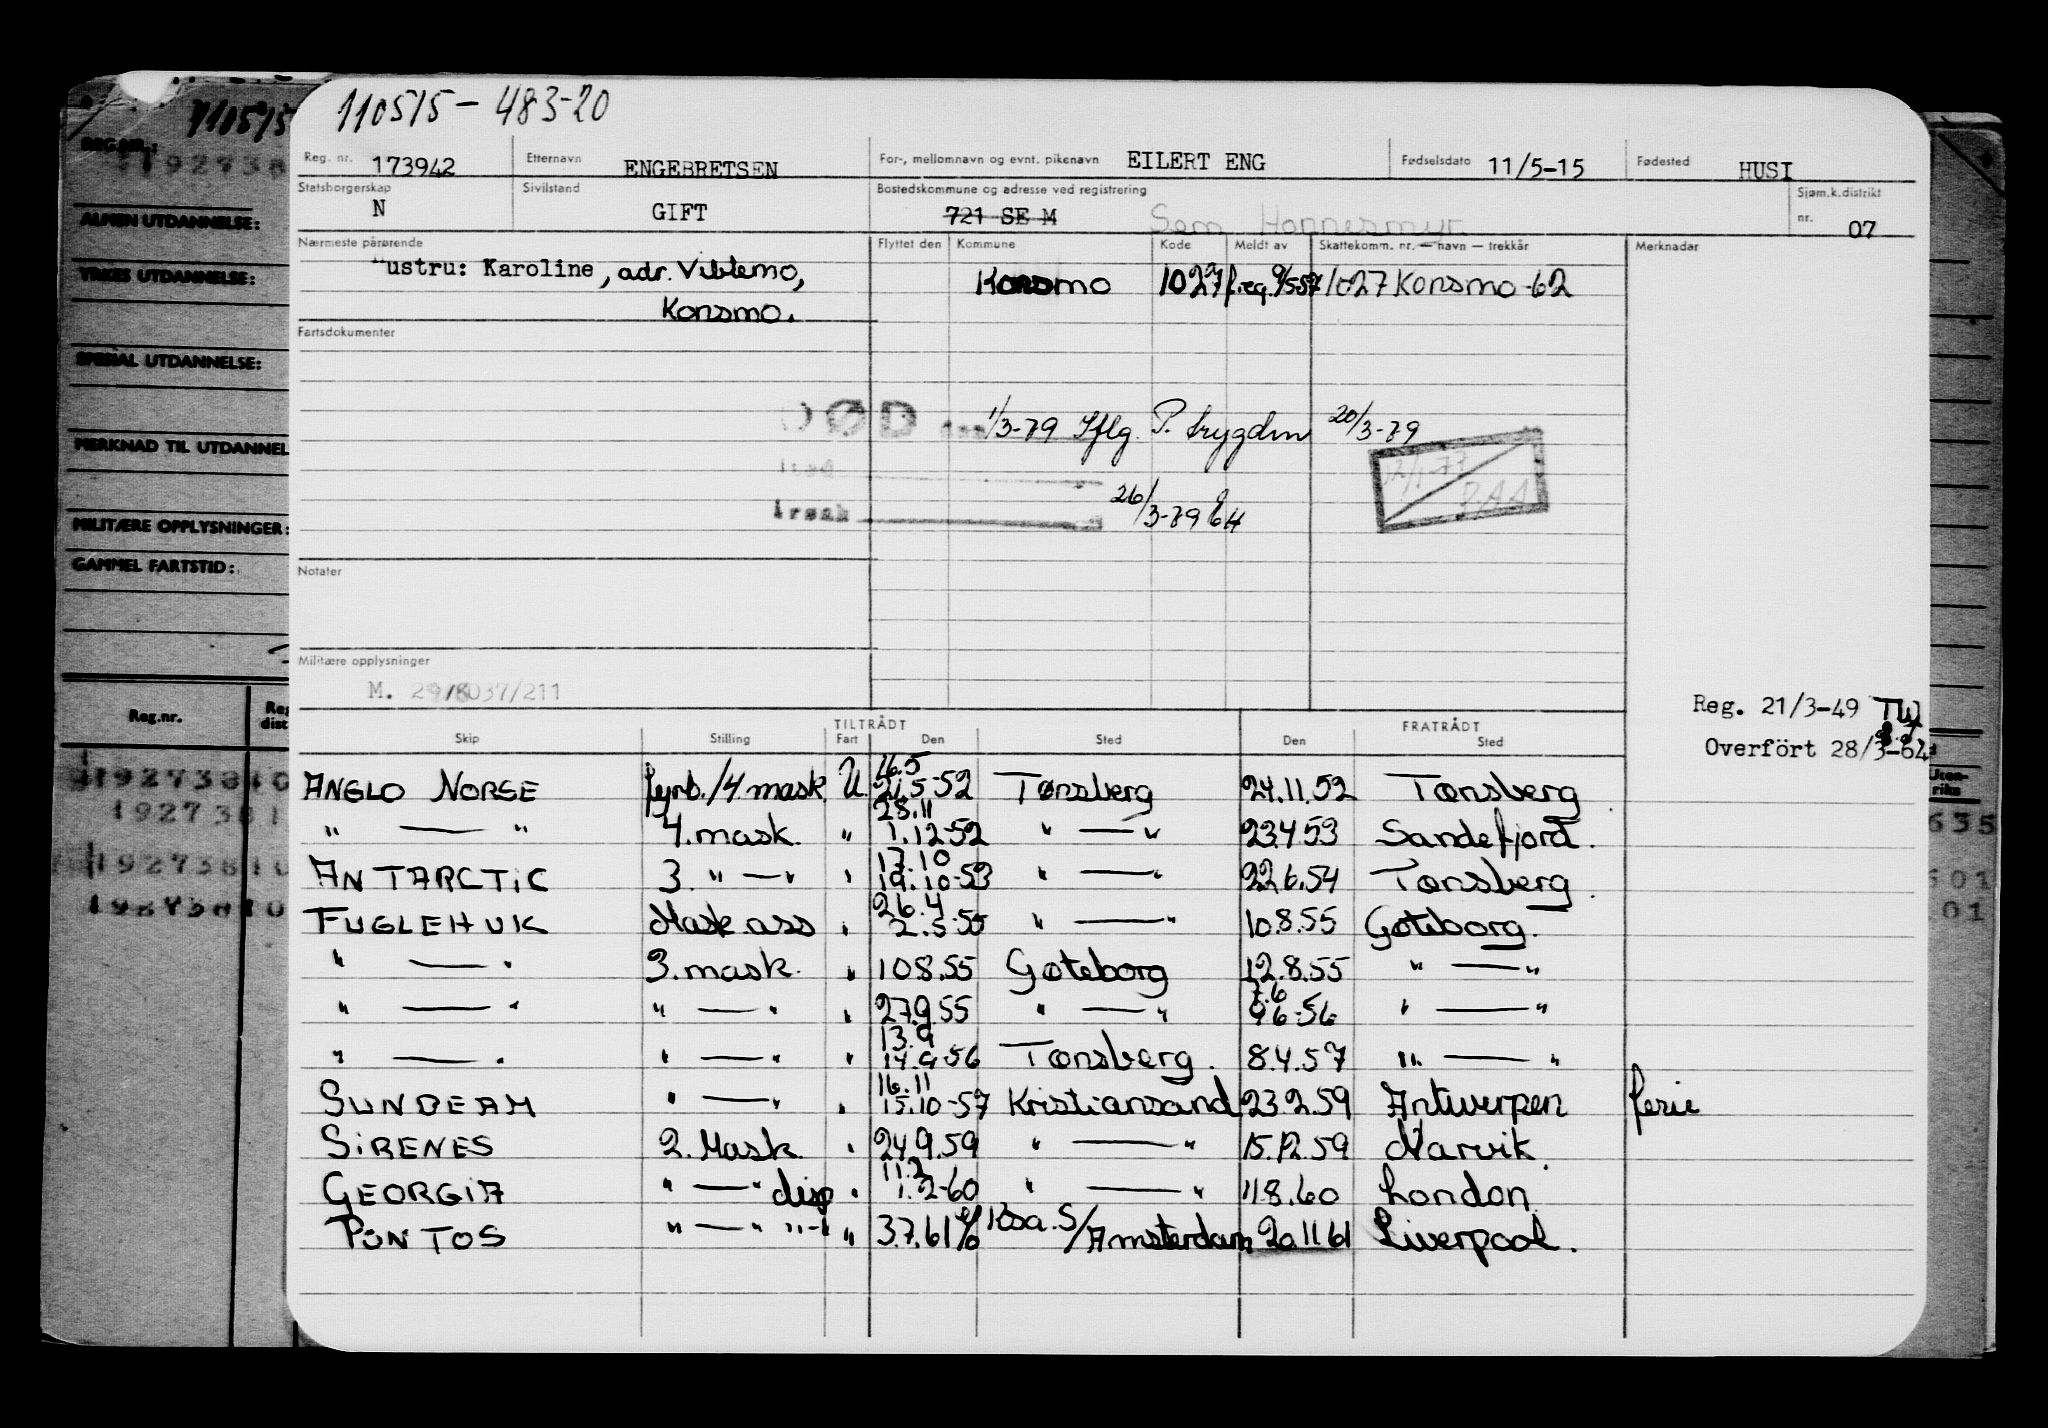 110515 - 483-20
Reg. nr. 173942 Etternavn ENGEBRETSEN For-, mellomnavn og evnt. pikenavn EILERT ENG Fødselsdato 11/5-15 Fødested HUSI
Statsborgerskap N Sivilstand GIFT Bostedskommune og adresse ved registrering 721 SE M Sem Sjøm.k.distrikt nr. 07
Nærmeste pårørende Flyttet den Kommune Kode Meldt av Skattekomm. nr. — navn — trekkår Merknader
"ustru: Karoline, adr. Viblemo, Konsmo 1027 f.reg. 9/5-57 1027 Konsmo-62
Konsmo.
Fartsdokumenter
DØD den 1/3-79 Iflg. P. trygden 20/3-79
Årsak 26/3-79
Notater
Militære opplysninger
M. 29/8037/211
Reg. 21/3-49 TW
Overfört 28/3-64
TILTRÅDT FRATRÅDT
Skip Stilling Fart Den Sted Den Sted
ANGLO NORSE fyrb./4 mask U 16.5 21.5-52 Tønsberg 24.11.52 Tønsberg
" — " 4. mask. " 28.11 1.12-52 " — " 23.4 53 Sandefjord.
ANTARCTIC 3. " — " " 17.10 19.10-53 " — " 22.6.54 Tønsberg.
FUGLEHUK Mask.ass " 26.4 2.5-55 " — " 10.8.55 Gøteborg.
" — " 3. mask. " 10.8.55 Gøteborg 12.8.55 " — "
" — " " — " " 27.9.55 " — " 7.6 9.6-56 " — "
" — " " — " " 13.9 14.9-56 Tønsberg. 8.4.57 " — "
SUNBEAM " — " " 16.11 15.10-57 Kristiansand 23.2.59 Antwerpen ferie
SIRENES 2. Mask. " 24.9.59 " — " 15.12.59 Narvik.
GEORGIA " — " disp " 11.2 1.2-60 " — " 11.8.60 London
PONTOS " — " " - " " 3.7.61 Ksa. S/Amsterdam 20.11 61 Liverpool.
110515
REG.NR.:
192738
ALMEN UTDANNELSE:
YRKES UTDANNELSE:
SPESIAL UTDANNELSE:
MERKNAD TIL UTDANNEL
MILITÆRE OPPLYSNINGER:
GAMMEL FARTSTID:
Reg.nr. Reg dist
19273810
1927381
19273810
19273810
Uten-
riks
635
601
01